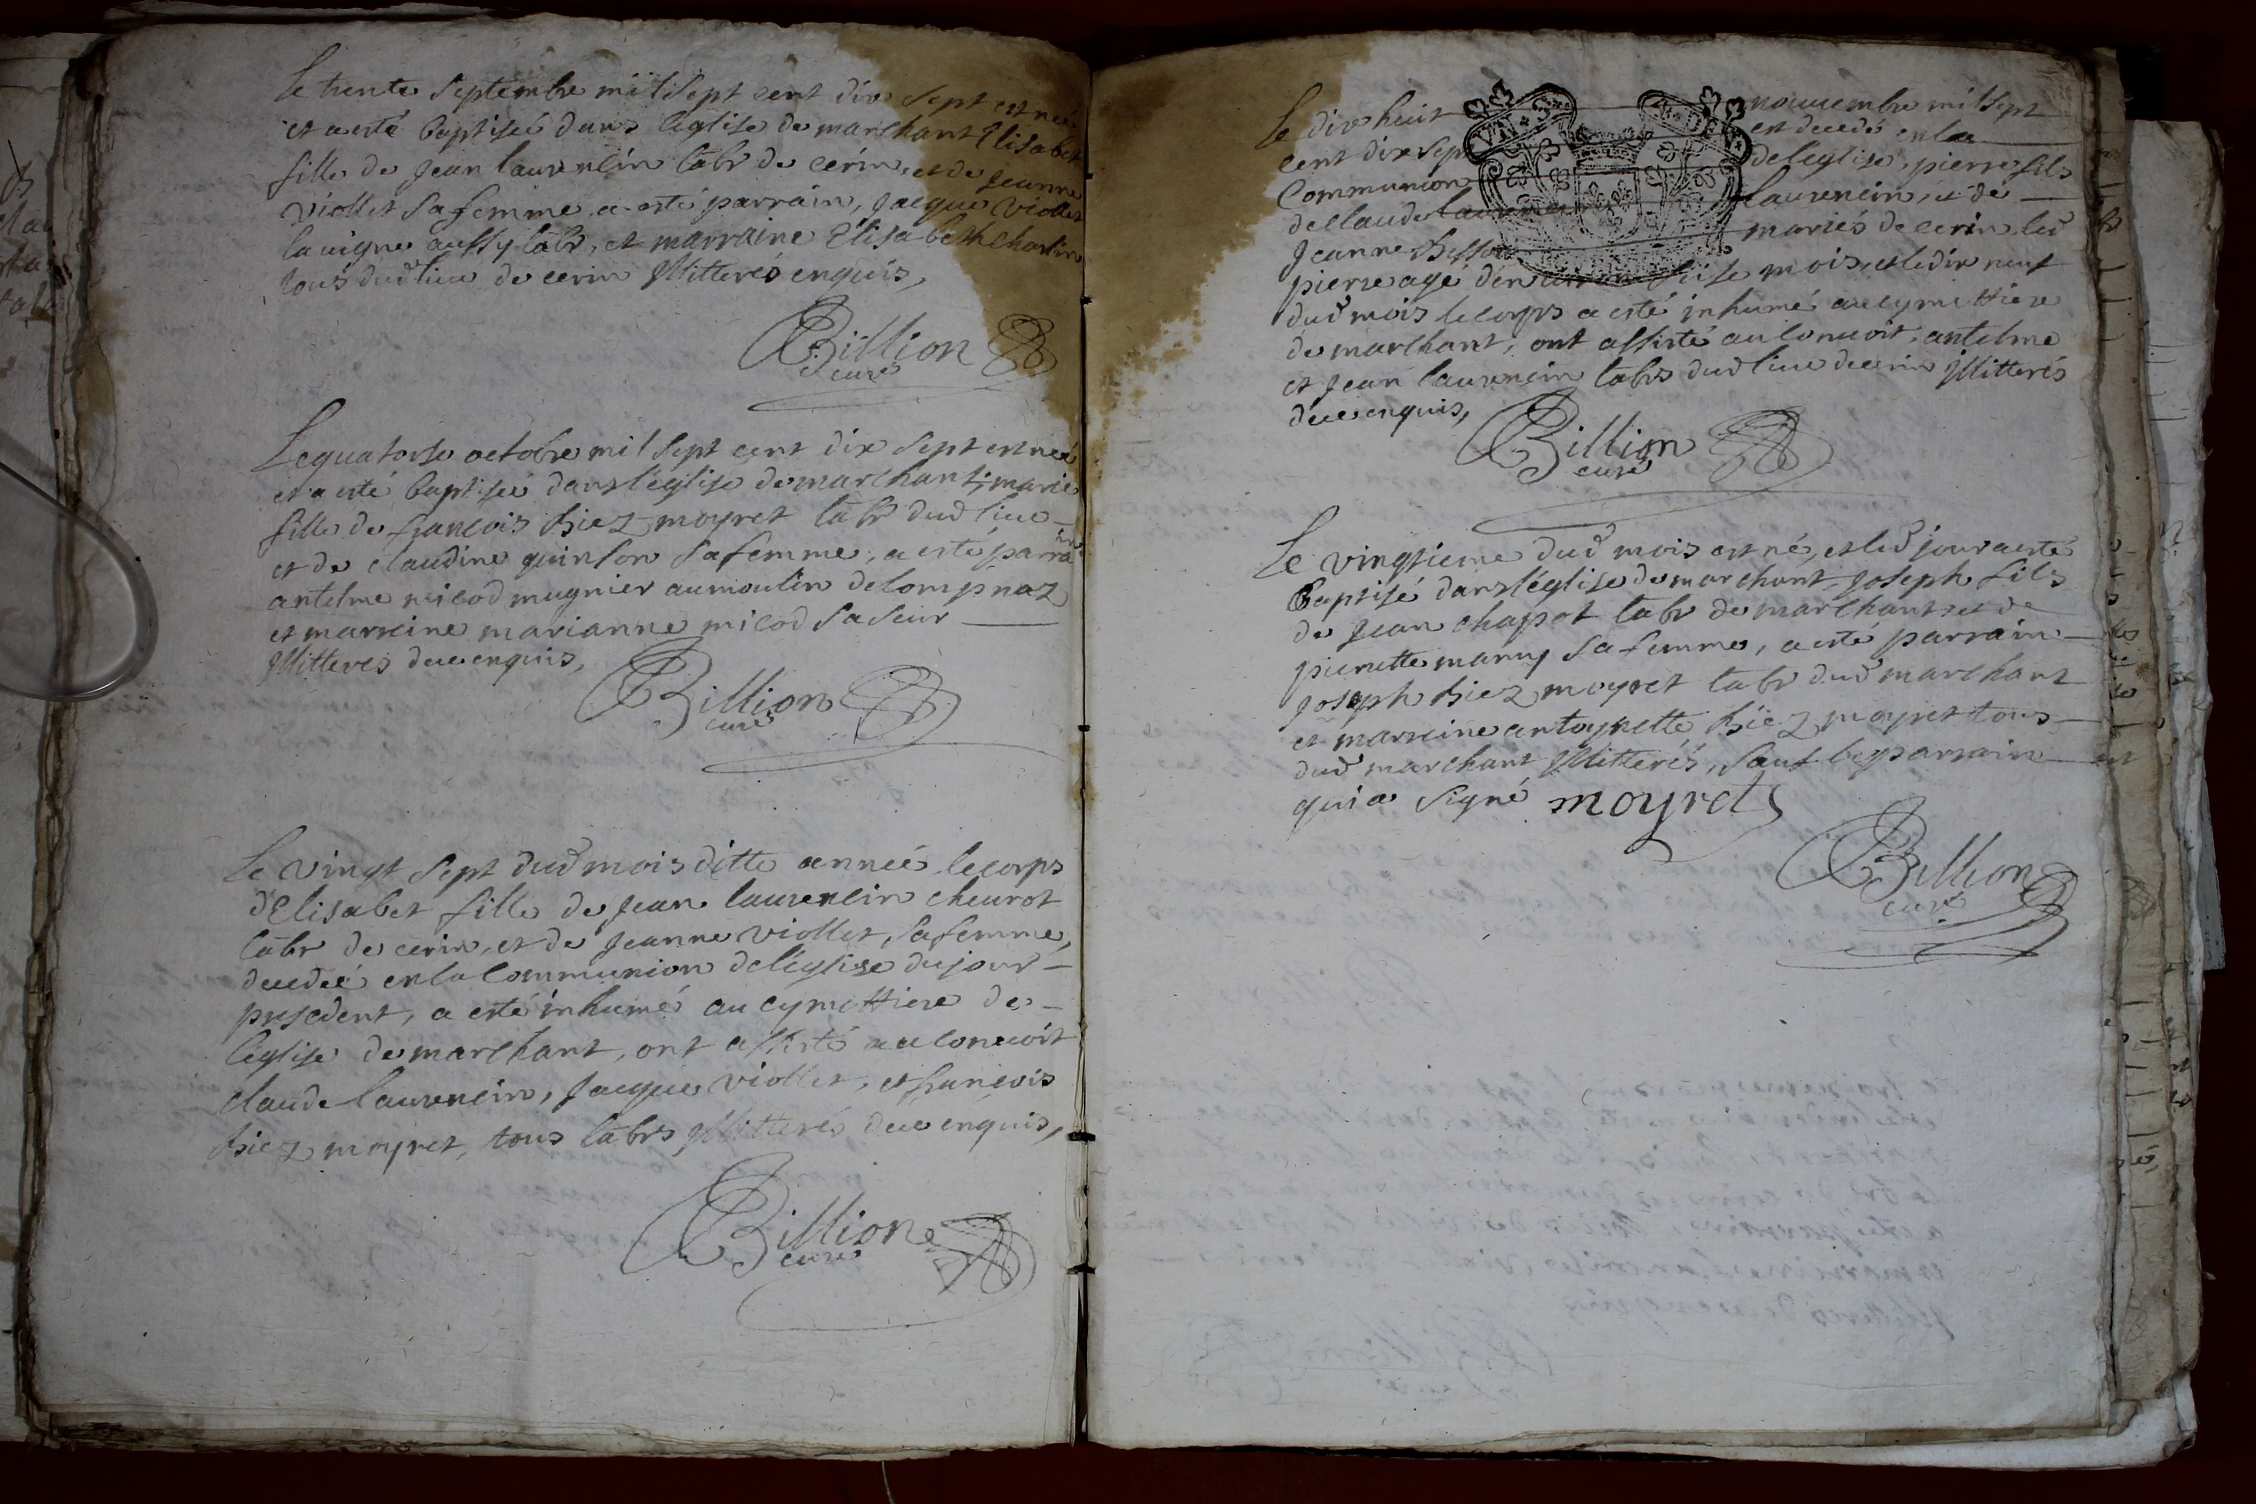 Le trente septembre mil sept cent dix sept est née
et a esté baptiseé dans léglise de marchant Elisabet
fille de Jean laurencin labr de cerin, et de Jeanne
viollet sa femme, a esté parrain, Jacque viollet
lavigne aussy labr, et marraine Elisabeth Charlin
tous dud lieu de cerin Illitterés enquis,
Billion
curé
Le quatorse octobre mil sept cent dix sept est née
et a esté baptiseé dans léglise de marchant, marie
fille de francois hiez moyret labr dud lieu
et de claudine quinson sa femme, a esté parrain
antelme micod mugnier au moulin de lompnaz
et marreine marianne micod sa seur
Illitteres de ce enquis,
Billion
curé
Le vingt sept dud mois ditte anneé le corps
d'Elisabet fille de Jean laurencin cheurot
labr de cerin, et de Jeanne viollet, sa femme,
decedeé en la Communion de l'églize du jour
presedent, a esté inhumé au cymettiere de
léglise de marchant, ont assisté au convoit
claude laurencin, Jacque viollet, et francois
hiez moyret, tous labrs Illitterés de ce enquis,
Billion
curé
Le dix huit novembre mil sept
cent dix sept est decedé en la
Communion de leglise, pierre fils
de claude laurencin, et de
Jeanne mariés de cerin led
pierre agé denviron mois, et le dix neuf
dud mois le corps a esté inhumé au cymettiere
de marchant, ont assisté au convoit, antelme
et Jean laurencin labrs dud lieu de cerin Illitterés
de ce enquis,
Billion
curé
Le vingtieme dud mois est né, et led jour a esté
Baptisé dans léglise de marchant Joseph fils
de Jean chapot labr de marchant et de
pierrette marny sa femme, a esté parrain
Joseph hiez moyret labr dud marchant
et marreine antoynette hiez moyret tous
dud marchant Illitterés, sauf le parrain
qui a signé moyret
Billion
curé